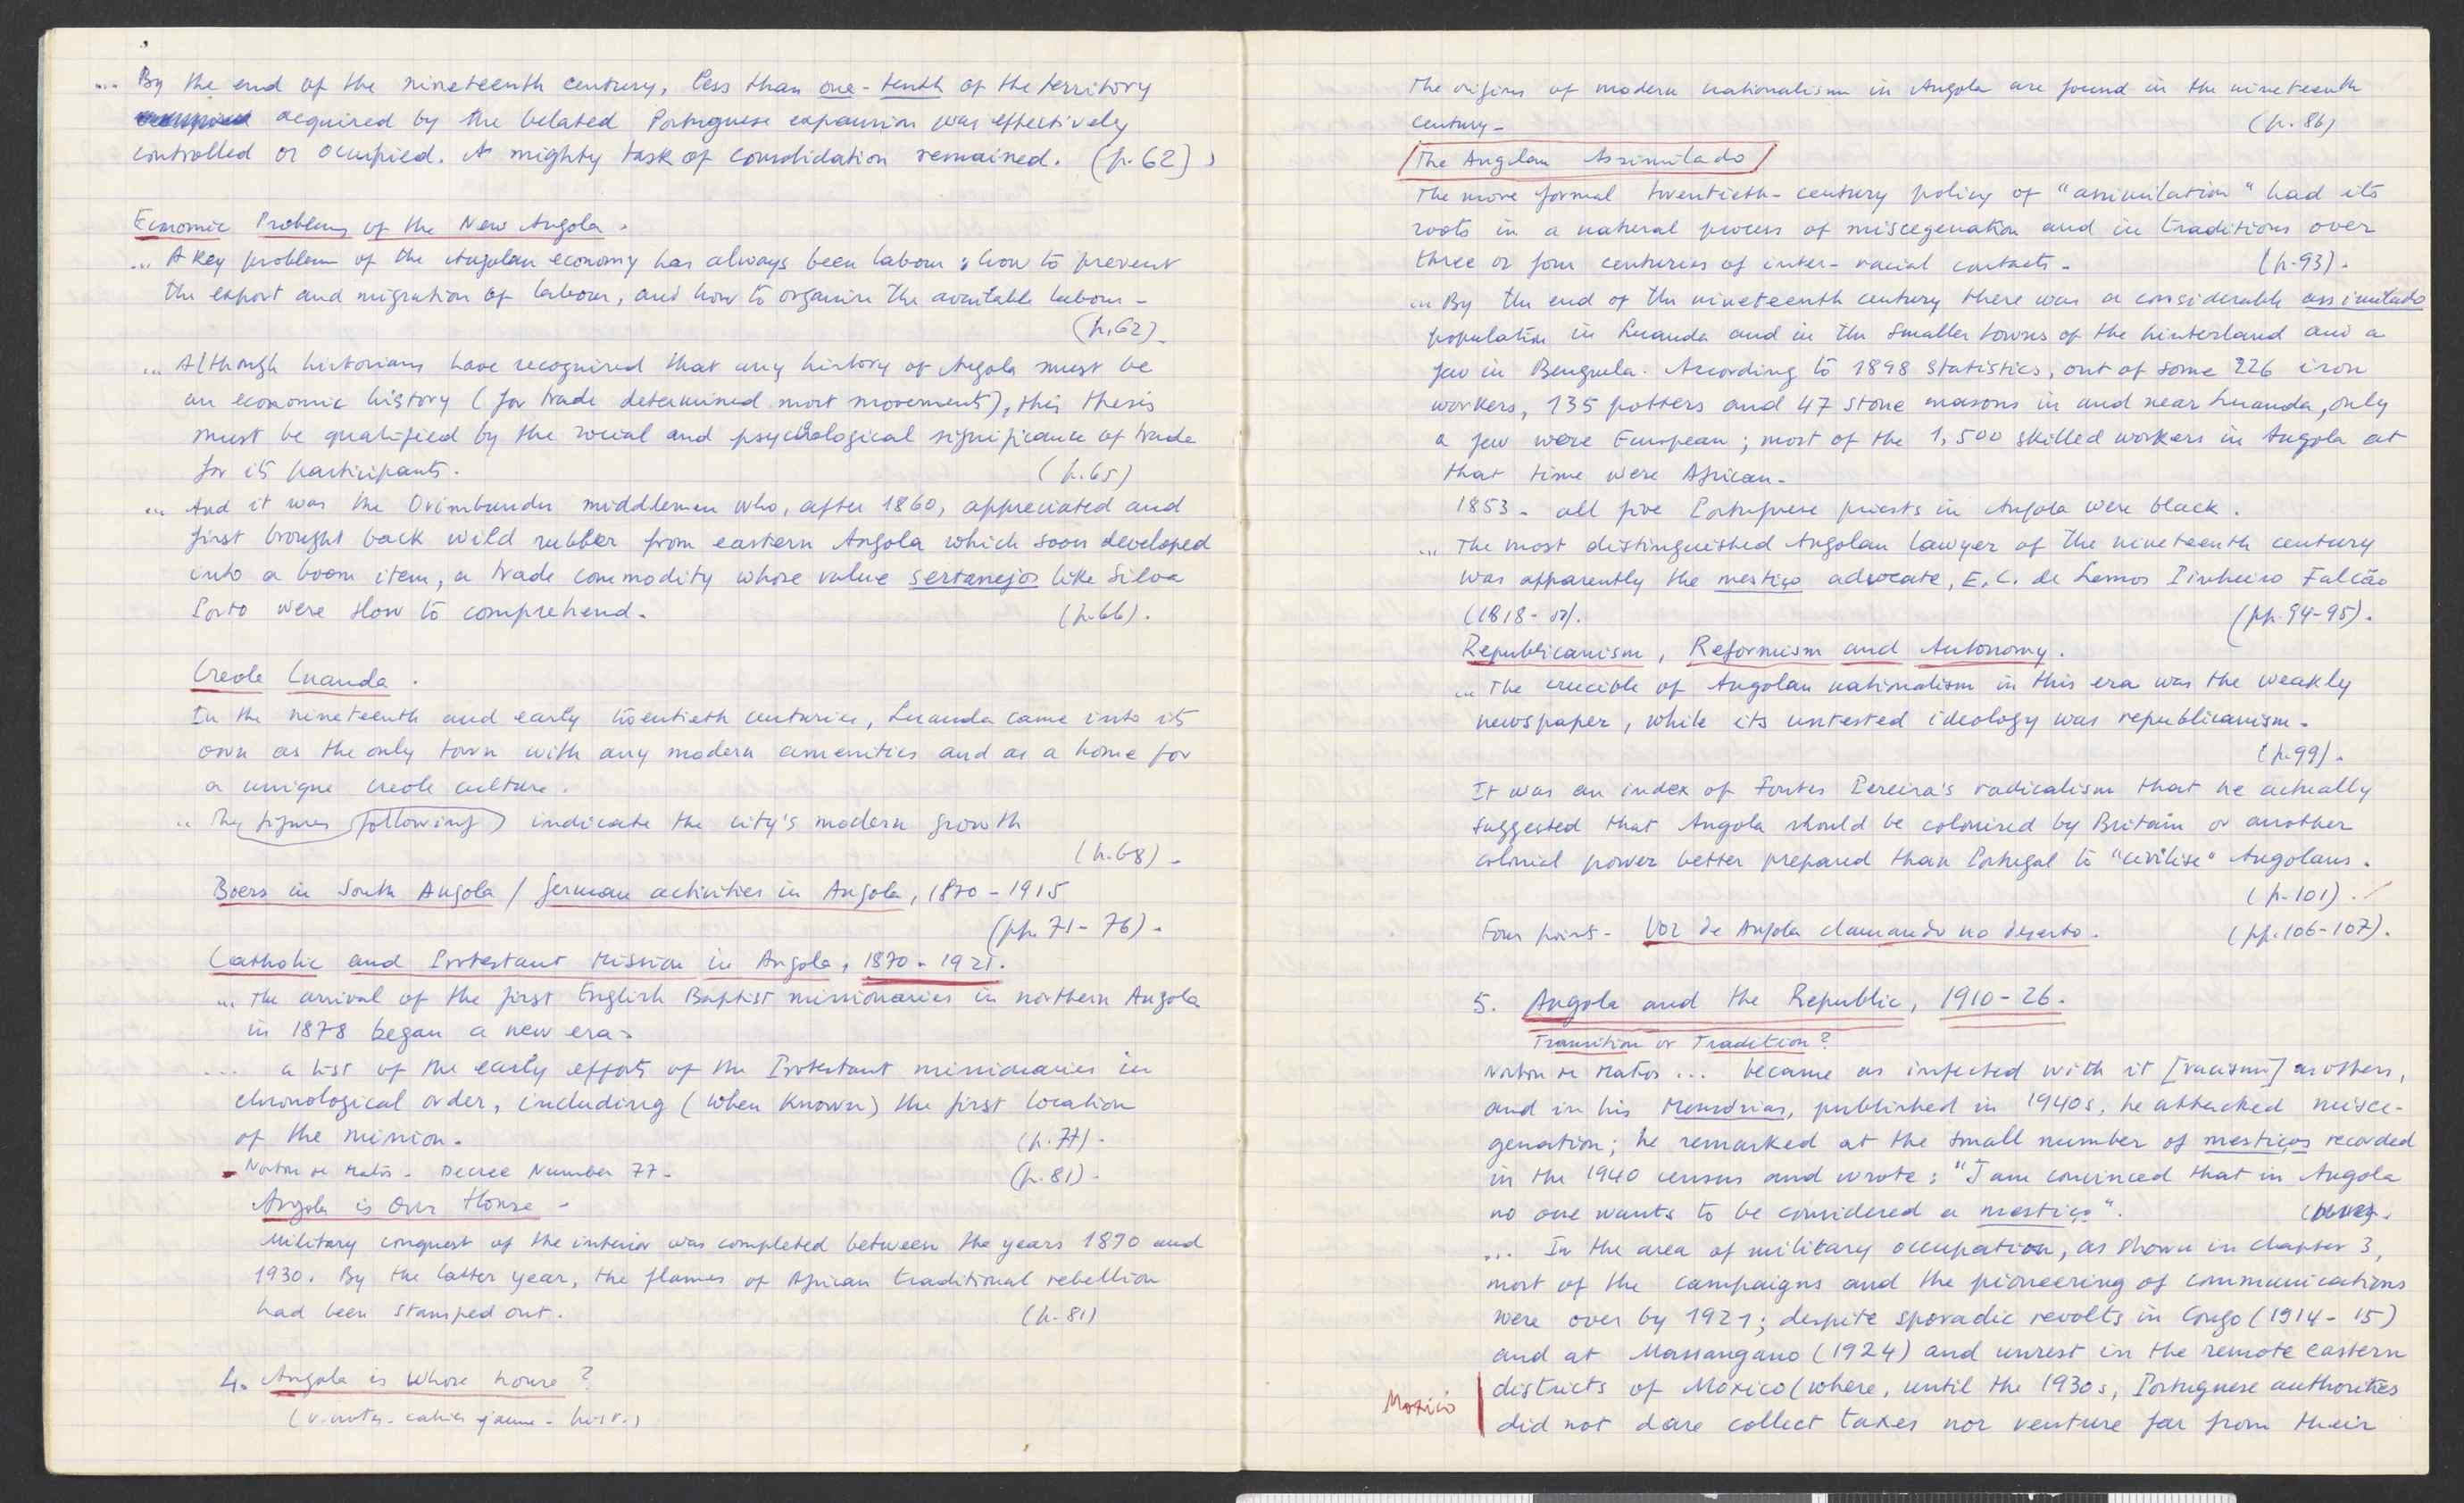 ... By the end of the nineteenth century, less than one-tenth of the territory
acquired by the belated Portuguese expansion was effectively
controlled or occupied. A mighty task of consolidation remained. (p.62)
Economic Problems of the New Angola.
... A key problem of the Angolan economy has always been labour: how to prevent
the export and migration of labour, and how to organise the available labour -
(p.62)
... Although historians have recognized that any history of Angola must be
an economic history (for trade determined most movements), this thesis
must be qualified by the social and psychological significance of trade
for its participants. (p.65)
... And it was the Ovimbundu middlemen who, after 1860, appreciated and
first brought back wild rubber from eastern Angola which soon developed
into a boom item, a trade commodity whose value sertanejos like Silva
Porto were slow to comprehend. (p.66).
Creole Luanda.
In the nineteenth and early twentieth centuries, Luanda came into its
own as the only town with any modern amenities and as a home for
a unique creole culture.
... The figures following indicate the city's modern growth
(p.68).
Boers in South Angola / German activities in Angola, 1870-1915
(pp. 71-76).
Catholic and Protestant Mission in Angola, 1870-1921.
... The arrival of the first English Baptist missionaries in northern Angola
in 1878 began a new era.
... a list of the early efforts of the Protestant missionaries in
chronological order, including (when known) the first location
of the mission. (p.77).
- Norton de Matos - Decree Number 77. (p.81).
Angola is Our House -
Military conquest of the interior was completed between the years 1890 and
1930. By the latter year, the flames of African traditional rebellion
had been stamped out. (p.81)
4. Angola is whose house?
(v. notes - cahier jaune - hist.)
The origins of modern nationalism in Angola are found in the nineteenth
century - (p.86)
The Angolan Assimilado
The more formal twentieth-century policy of "assimilation" had its
roots in a natural process of miscegenation and in traditions over
three or four centuries of inter-racial contacts. (p.93).
... By the end of the nineteenth century there was a considerable assimilado
population in Luanda and in the smaller towns of the hinterland and a
few in Benguela. According to 1898 statistics, out of some 226 iron
workers, 135 potters and 47 stone masons in and near Luanda, only
a few were European; most of the 1,500 skilled workers in Angola at
that time were African.
1853 - all five Portuguese priests in Angola were black.
... The most distinguished Angolan lawyer of the nineteenth century
was apparently the mestiço advocate, E. C. de Lemos Pinheiro Falcão
(1818- (pp.94-95).
Republicanism, Reformism and Autonomy.
... The crucible of Angolan nationalism in this era was the weakly
newspaper, while its untested ideology was republicanism.
(p.99).
It was an index of Fontes Pereira's radicalism that he actually
suggested that Angola should be colonised by Britain or another
colonial power better prepared than Portugal to "civilise" Angolans.
(p.101).
Four points - Voz de Angola clamando no deserto. (pp.106-107).
5. Angola and the Republic, 1910-26.
Transition or Tradition?
Norton de Matos ... became as infected with it [racism] as others,
and in his Memórias, published in 1940s, he attacked misce-
genation; he remarked at the small number of mestiços recorded
in the 1940 census and wrote: "I am convinced that in Angola
no one wants to be considered a mestiço".
... In the area of military occupation, as shown in chapter 3,
most of the campaigns and the pioneering of communications
were over by 1921; despite sporadic revolts in Congo (1914-15)
and at Massangano (1924) and unrest in the remote eastern
districts of Moxico (where, until the 1930s, Portuguese authorities
Moxico
did not dare collect taxes nor venture far from their